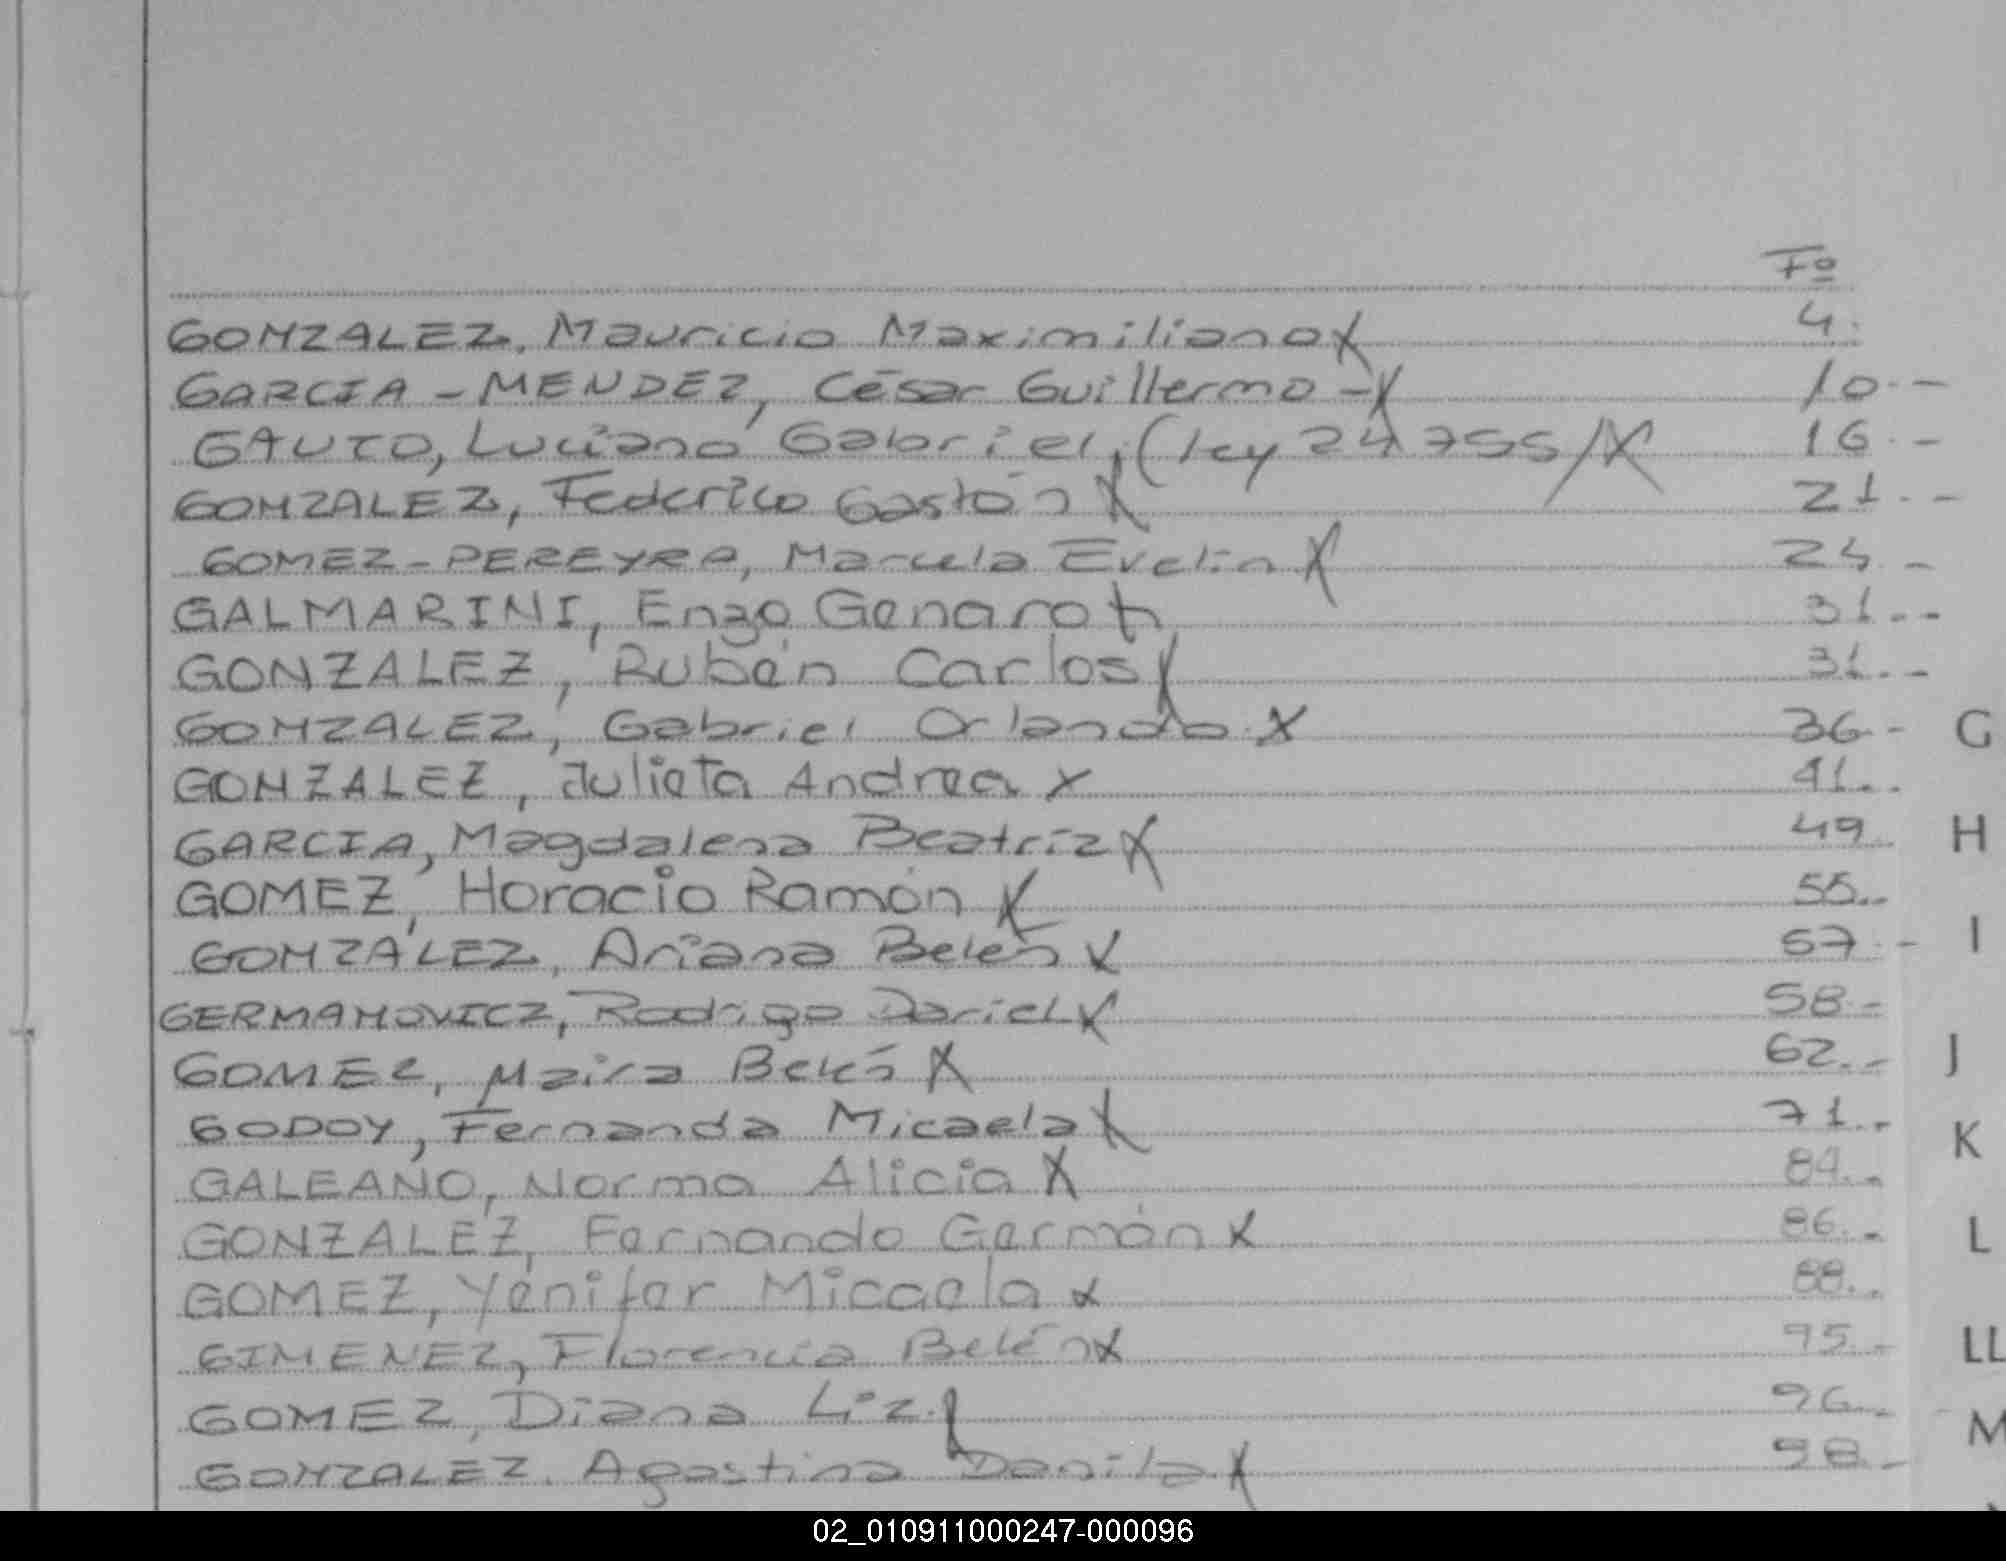 Fº
GONZALEZ, Mauricio Maximiliano X 4.
GARCIA - MENDEZ, César Guillermo - X 10.-
GAUTO, Luciano Gabriel, (ley 24755/X 16.-
GONZALEZ, Federico Gastón X 21.-
GOMEZ-PEREYRA, Marcela Evelin X 24.-
GALMARINI, Enzo Genaro X 31.-
GONZALEZ, Rubén Carlos X 31.-
GONZALEZ, Gabriel Orlando X 36.- G
GONZALEZ, Julieta Andrea X 41..
GARCIA, Magdalena Beatríz X 49. H
GOMEZ, Horacio Ramón X 55..
GONZALEZ, Ariana Belén X 57.- I
GERMANOVICZ, Rodrigo Dariel X 58.-
GOMEZ, Maira Belén X 62.- J
GODOY, Fernanda Micaela X 71.-
K
GALEANO, Norma Alicia X 84.-
GONZALEZ, Fernando Germán X 86.- L
GOMEZ, Yénifer Micaela X 88..
GIMENEZ, Florencia Belén X 95.- LL
GOMEZ, Diana Liz. X 96.-
M
GONZALEZ. Agostina Danila. X 98.-
02_010911000247-000096